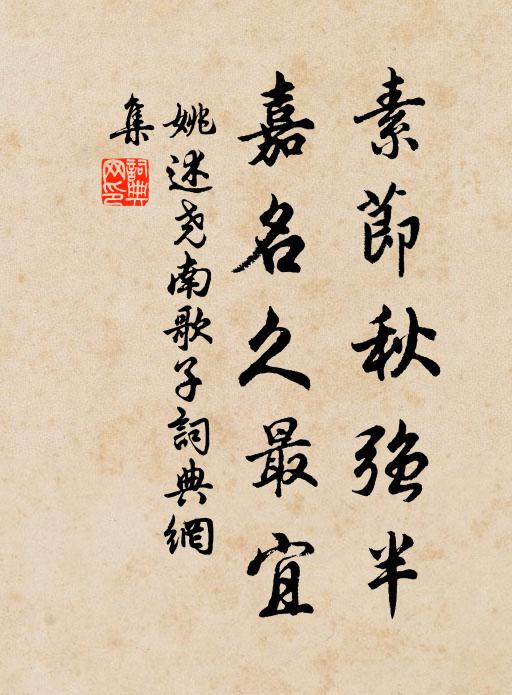 素節秋強半
嘉名久最宜
姚述堯南歌子詞典網
集
詞典
网印